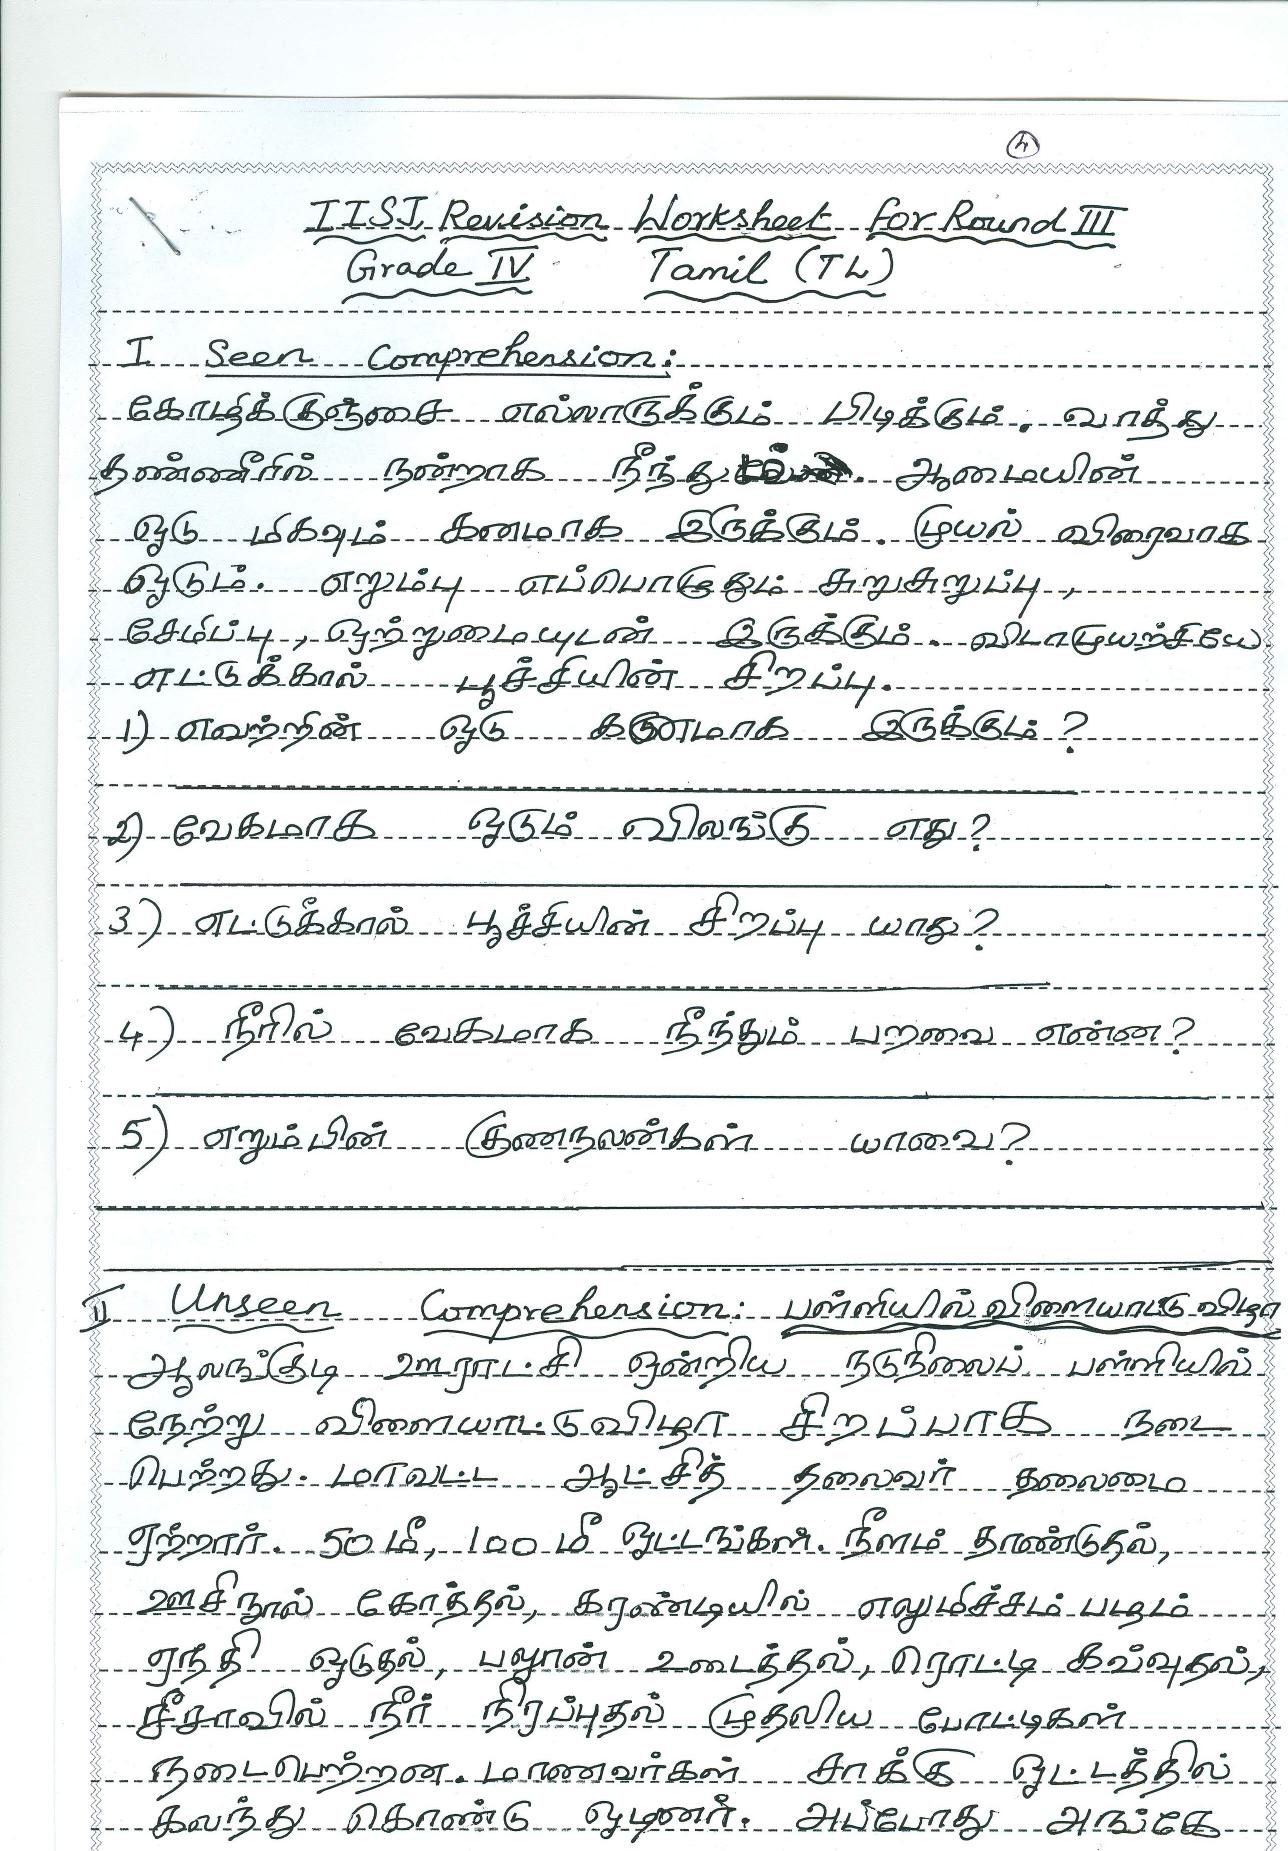 4
IISJ Revision Worksheet for Round III
Grade IV Tamil (TL)
I Seen Comprehension:
கோழிக்குஞ்சை எல்லாருக்கும் பிடிக்கும். வாத்து
தண்ணீரில் நன்றாக நீந்தும். ஆமையின்
ஓடு மிகவும் கனமாக இருக்கும். முயல் விரைவாக
ஓடும். எறும்பு எப்பொழுதும் சுறுசுறுப்பு,
சேமிப்பு, ஒற்றுமையுடன் இருக்கும். விடாமுயற்சியே
எட்டுக்கால் பூச்சியின் சிறப்பு.
1) எவற்றின் ஓடு கனமாக இருக்கும்?
2) வேகமாக ஓடும் விலங்கு எது?
3) எட்டுக்கால் பூச்சியின் சிறப்பு யாது?
4) நீரில் வேகமாக நீந்தும் பறவை என்ன?
5) எறும்பின் குணநலன்கள் யாவை?
II Unseen Comprehension: பள்ளியில் விளையாட்டு விழா
ஆலங்குடி ஊராட்சி ஒன்றிய நடுநிலைப் பள்ளியில்
நேற்று விளையாட்டுவிழா சிறப்பாக நடை
பெற்றது. மாவட்ட ஆட்சித் தலைவர் தலைமை
ஏற்றார். 50 மீ, 100 மீ ஓட்டங்கள். நீளம் தாண்டுதல்,
ஊசிநூல் கோத்தல், கரண்டியில் எலுமிச்சம் பழம்
ஏந்தி ஓடுதல், பலூன் உடைத்தல், ரொட்டி கவ்வுதல்,
சீசாவில் நீர் நிரப்புதல் முதலிய போட்டிகள்
நடைபெற்றன. மாணவர்கள் சாக்கு ஓட்டத்தில்
கலந்து கொண்டு ஓடினர். அப்போது அங்கே